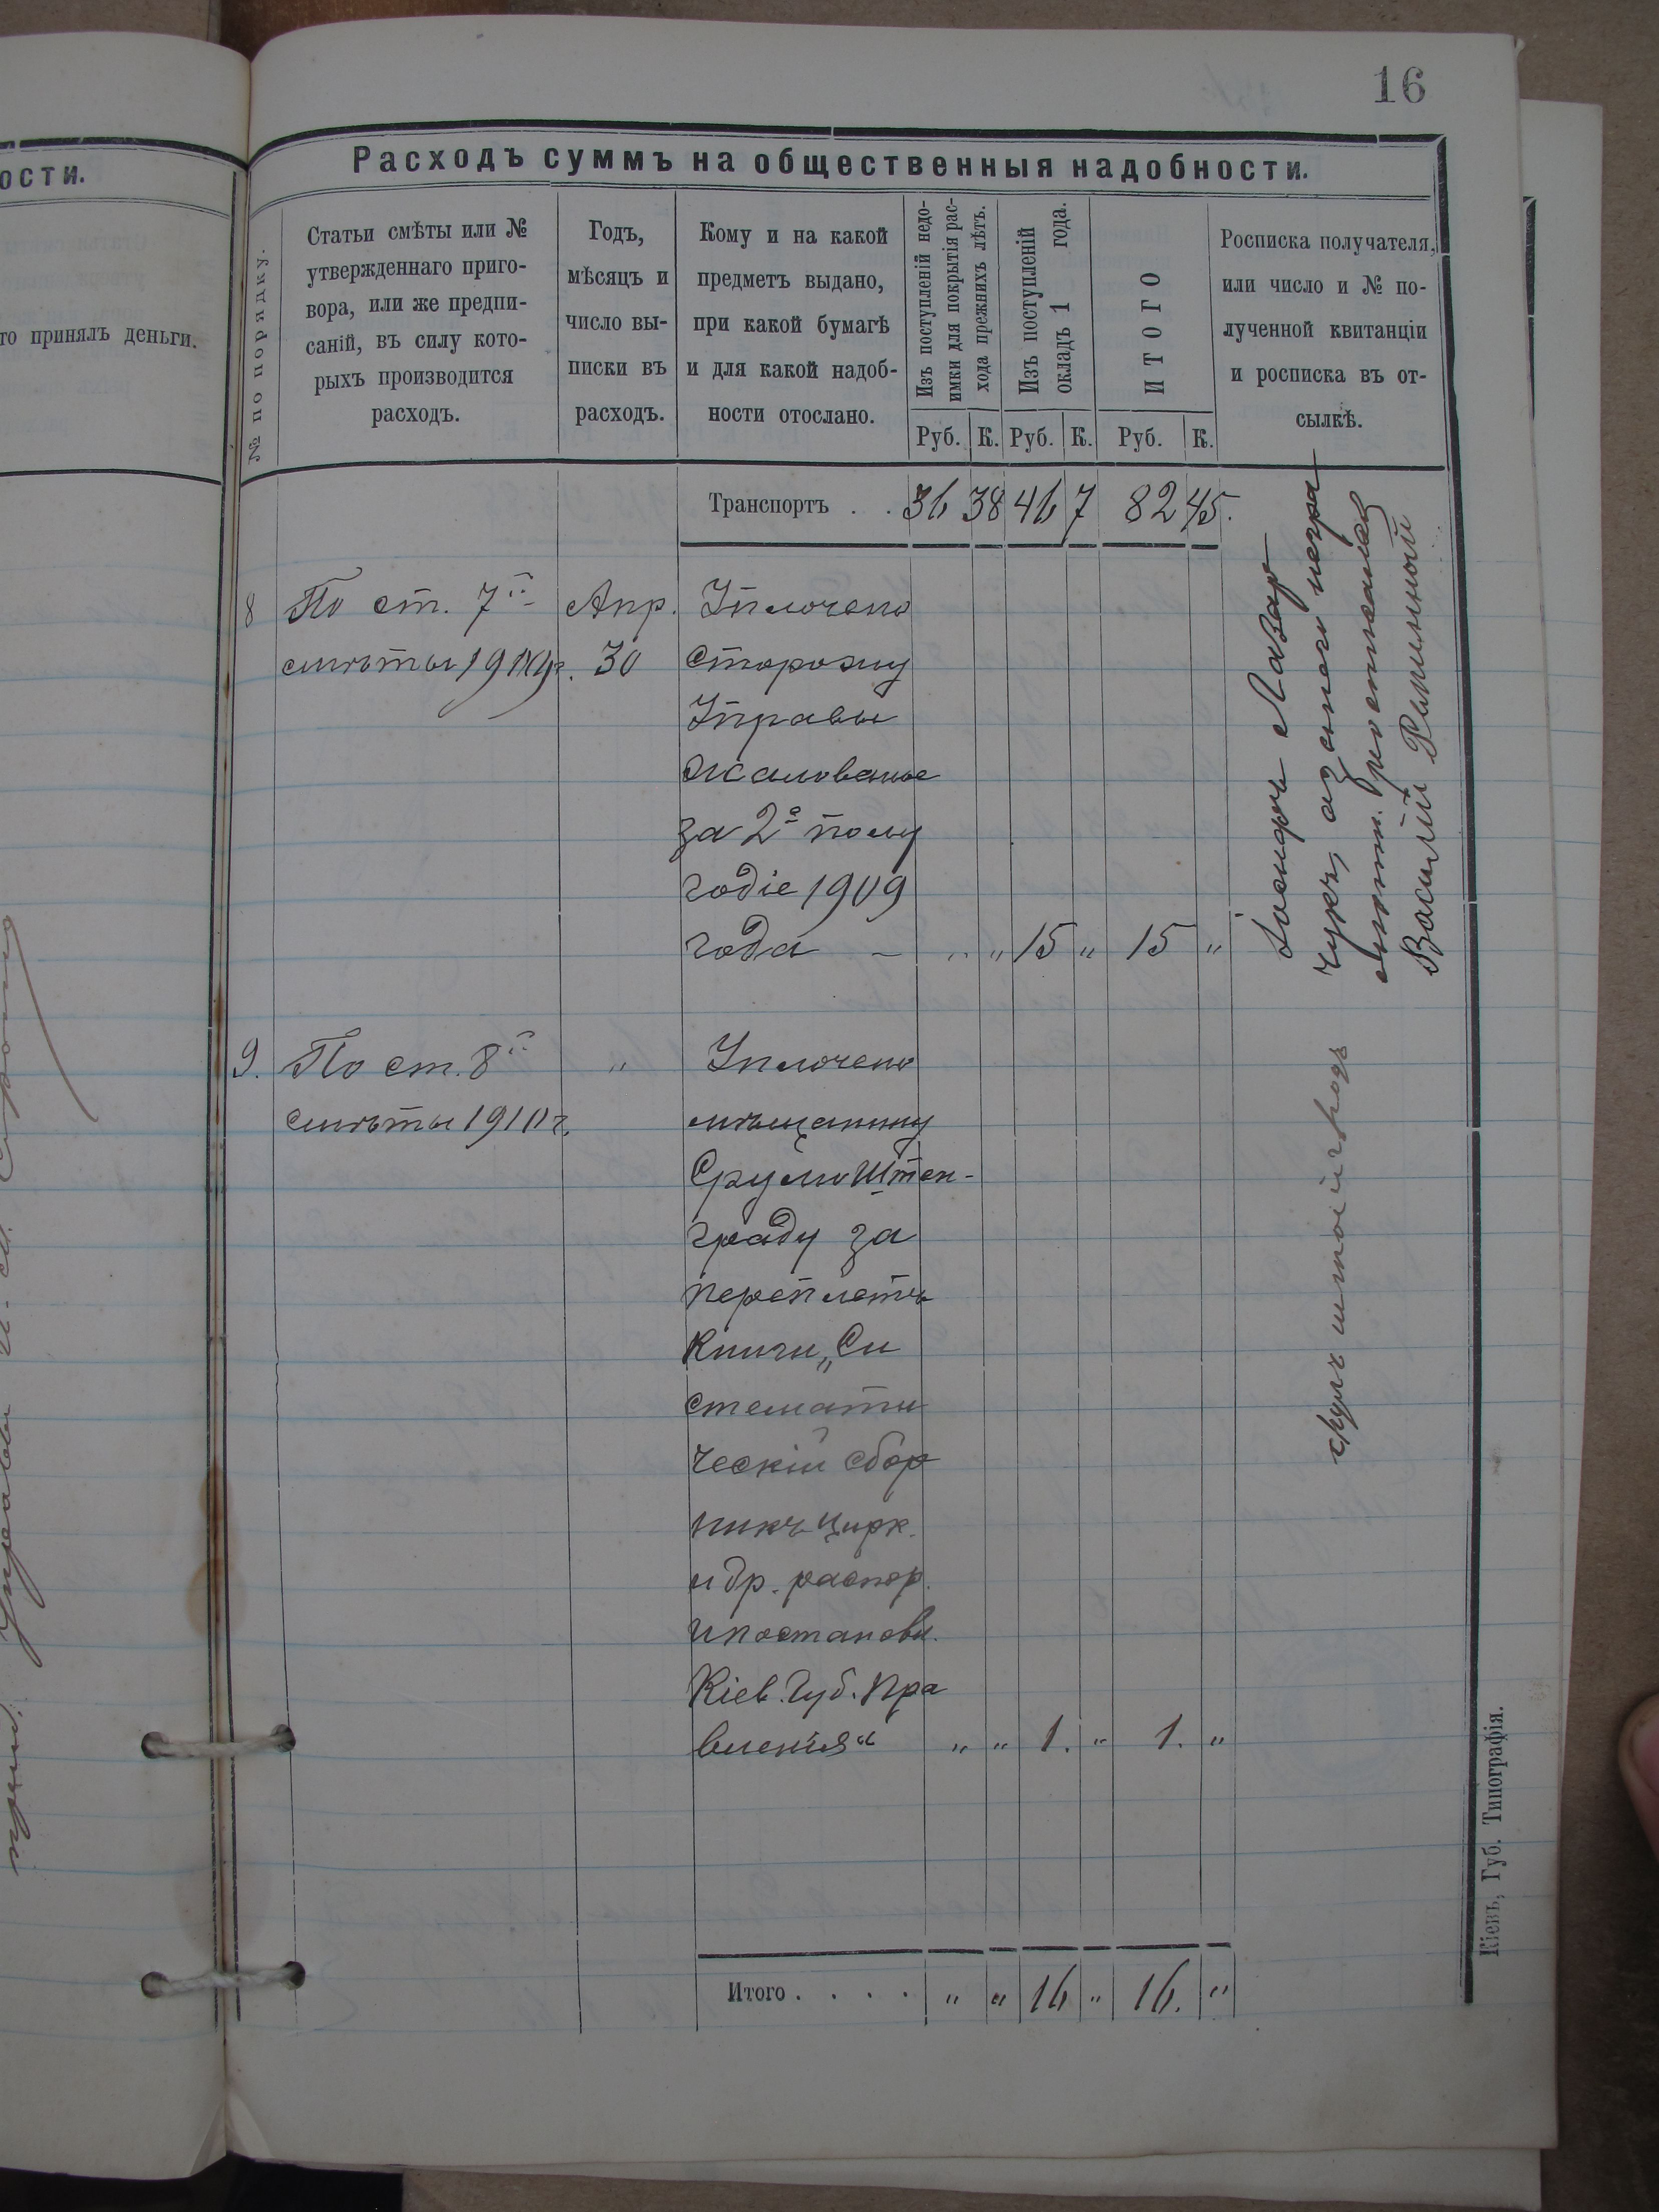 16
ости.
то принялъ деньги.
Расходъ суммъ на общественныя надобности.
№ по порядку.
Статьи смѣты или №
утвержденнаго приго-
вора, или же предпи-
саній, въ силу кото-
рыхъ производится
расходъ.
Годъ,
мѣсяцъ и
число вы-
писки въ
расходъ.
Кому и на какой
предметъ выдано,
при какой бумагѣ
и для какой надоб-
ности отослано.
Изъ поступленій недо-
имки для покрытія рас-
хода прежнихъ лѣтъ.
Изъ поступленій
окладъ 1 года.
ИТОГО
Руб. К. Руб. К. Руб. К.
Росписка получателя,
или число и № по-
лученной квитанціи
и росписка въ от-
сылкѣ.
Транспортъ . . 36 38 46 7 82 45.
8 По ст. 7й Апр. Уплочено
смѣты 1909г. 30 сторожу
Управы
жалованье
за 2е полу
годіе 1909
года — „ „ 15 „ 15 „
Василій
9. По ст. 8й „ Уплочено
смѣты 1910 г. мѣщанину
Срулю Штен-
граду за
переплетъ
книги „Си
стемати
ческій сбор
никъ цирк.
и др. распор.
и постановл.
Кіев. Губ. Пра
вленія“ „ „ 1. „ 1. „
Итого . . . . „ „ 16 „ 16. „
Кіевъ, Губ. Типографія.